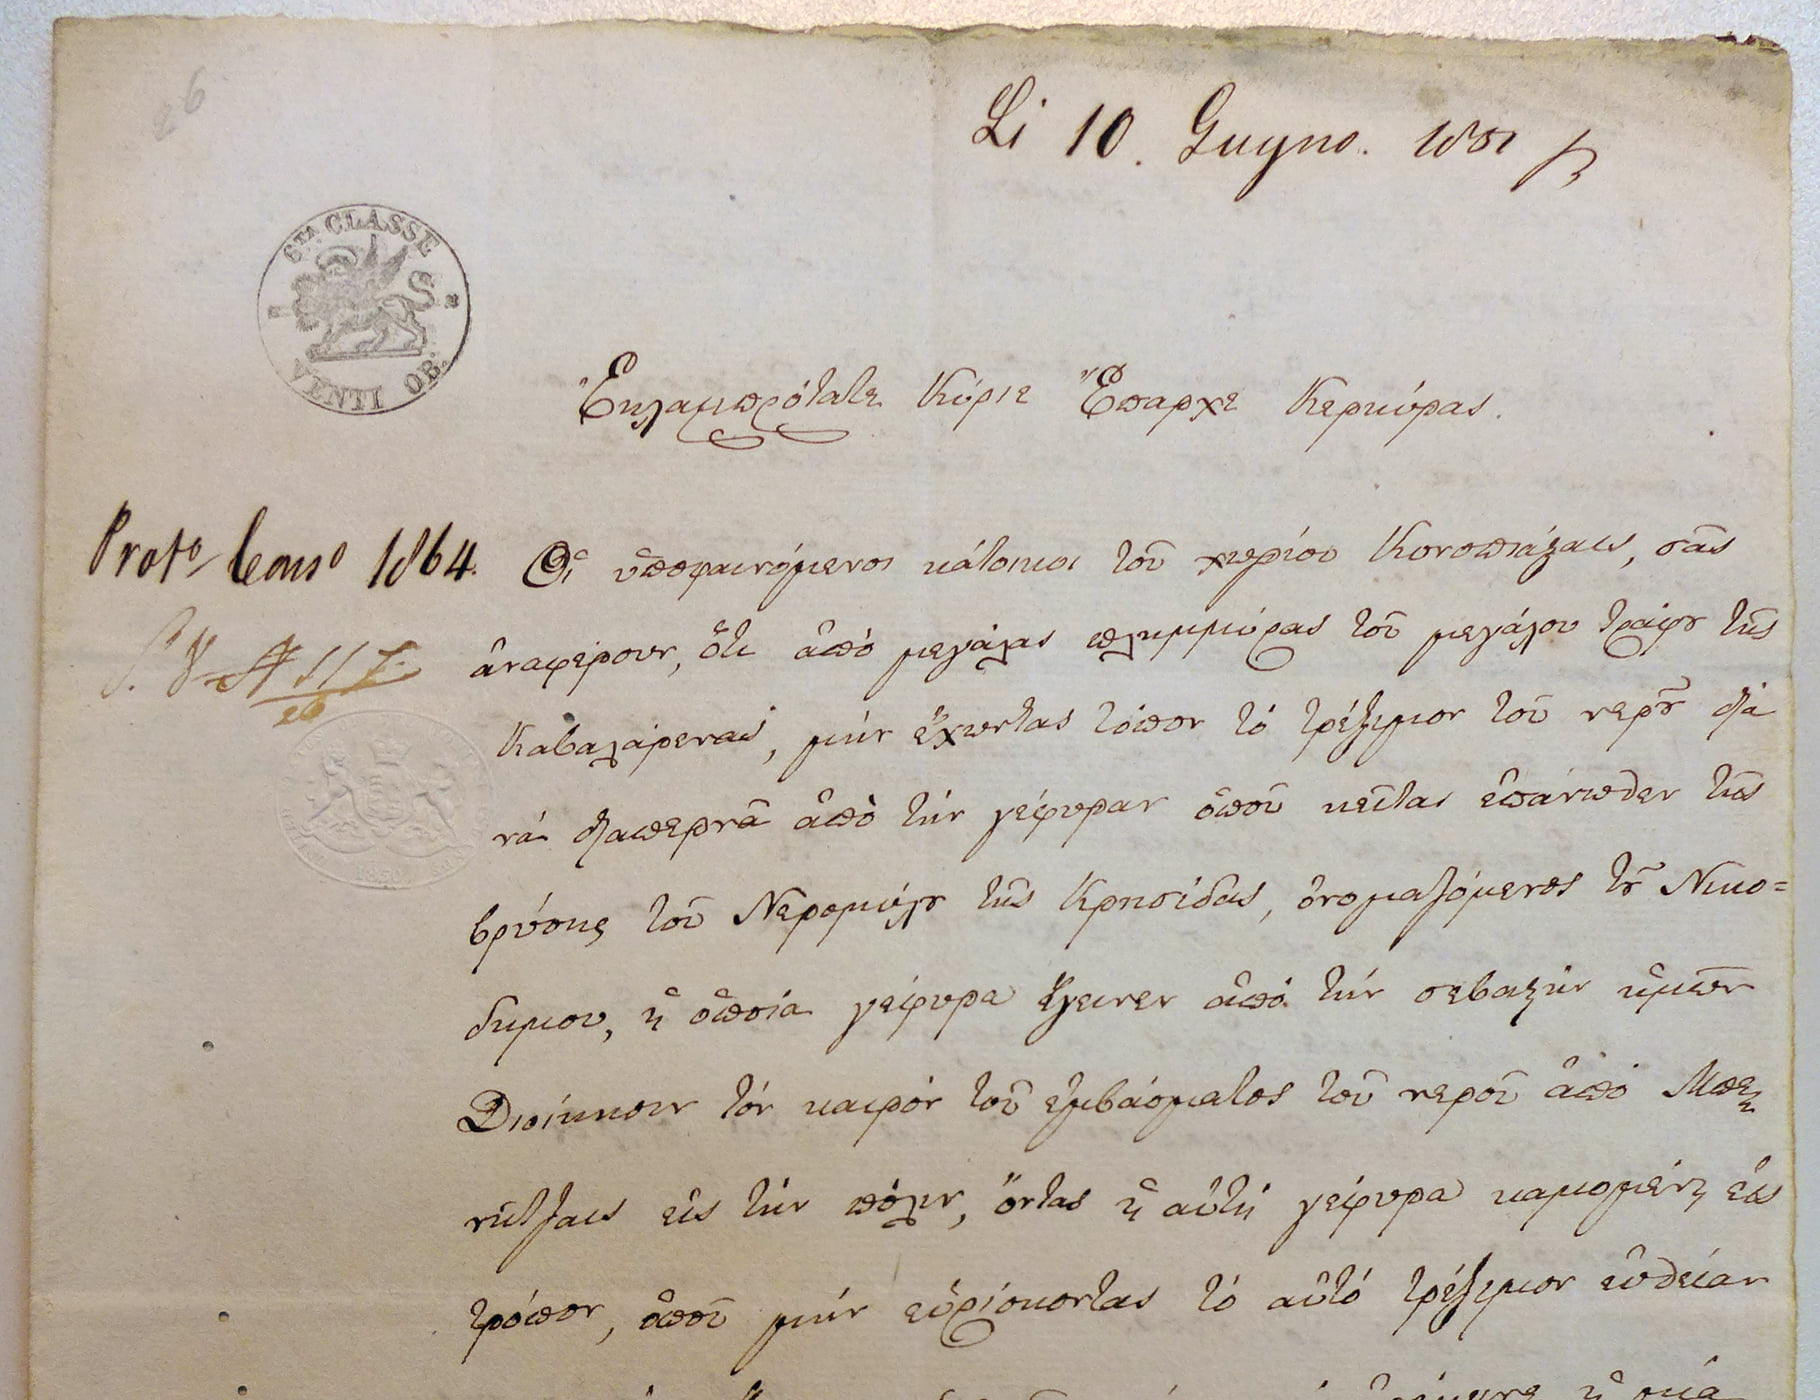 26
Li 10. Giugno. 1851
6TA CLASSE
VENTI OB.
Ἐκλαμπρότατε Κύριε Ἔπαρχε Κερκύρας.
Prot° Cons° 1864.
Οἱ ὑποφαινόμενοι κάτοικοι τοῦ χωρίου Κονοπιάδαις, σᾶς
ἀναφέρουν, ὅτι ἀπό μεγάλας πλημμύρας τοῦ μεγάλου τράφȣ τῆς
Καβαλάρενας, μήν ἔχωντας τόπον τό τρέξιμον τοῦ νερȣ͂ διὰ
νά διαπερνᾶ ἀπὸ τήν γέφυραν ὁποῦ κεῖται ἐπάνωθεν τῆς
βρύσης τοῦ Νερομύλȣ τῆς Κρησίδας, ὀνομαζόμενος τȣ͂ Νικο=
δημου, ἡ ὁποία γέφυρα ἔγεινεν ἀπό τήν σεβαςήν ἡμῶν
Διοίκησιν τόν καιρόν τοῦ ἐμβάσματος τοῦ νεροῦ ἀπό Μπε
νίτζαις εἰς τήν πόλιν, ὄντας ἡ αὐτή γέφυρα καμομένη εἰς
τρόπον, ὁποῦ μήν εὑρίσκοντας τό αὐτό τρέξιμον εὐθείαν